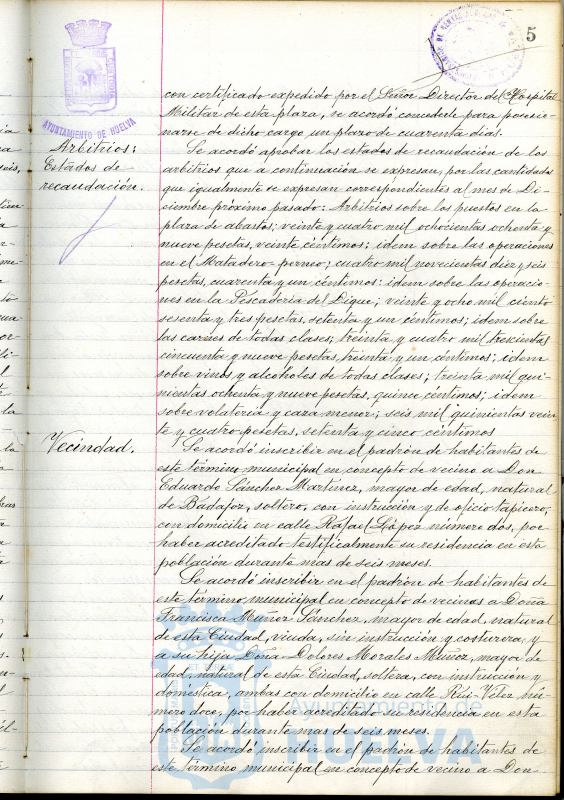 5
AYUNTAMIENTO DE HUELVA
con certificado expedido por el Señor Director del Hospital
Militar de esta plaza, se acordó concederle para posesio-
narse de dicho cargo un plazo de cuarenta días.
Arbitrios:
Estados de
recaudación.
Se acordó aprobar los estados de recaudación de los
arbitrios que a continuación se expresan, por las cantidades
que igualmente se expresan correspondientes al mes de Di-
ciembre próximo pasado: Arbitrios sobre los puestos en la
plaza de abastos; veinte y cuatro mil ochocientas ochenta y
nueve pesetas, veinte céntimos; idem sobre las operaciones
en el Matadero porcino; cuatro mil novecientas diez y seis
pesetas, cuarenta y un céntimos: idem sobre las operacio-
nes en la Pescadería del Dique; veinte y ocho mil ciento
sesenta y tres pesetas, setenta y un céntimos; idem sobre
las carnes de todas clases; treinta y cuatro mil trescientas
cincuenta y nueve pesetas, treinta y un céntimos; idem
sobre vinos y alcoholes de todas clases; treinta mil qui-
nientas ochenta y nueve pesetas, quince céntimos; idem
sobre volatería y caza menor; seis mil quinientas vein-
te y cuatro pesetas, setenta y cinco céntimos
Vecindad.
Se acordó inscribir en el padrón de habitantes de
este término municipal en concepto de vecino a Don
Eduardo Sánchez Martínez, mayor de edad, natural
de Badajoz, soltero, con instrucción y de oficio tapicero,
con domicilio en calle Rafael López número dos, por
haber acreditado testificalmente su residencia en esta
población durante mas de seis meses.
Se acordó inscribir en el padrón de habitantes de
este término municipal en concepto de vecinas a Doña
Francisca Muñoz Sánchez, mayor de edad, natural
de esta Ciudad, viuda, sin instrucción y costurera, y
a su hija Doña Dolores Morales Muñoz, mayor de
edad, natural de esta Ciudad, soltera, con instrucción y
doméstica, ambas con domicilio en calle Rui-Velez nú-
mero doce, por haber acreditado su residencia en esta
población durante mas de seis meses.
Se acordó inscribir en el padrón de habitantes de
este término municipal en concepto de vecino a Don
Ayuntamiento de
HUELVA